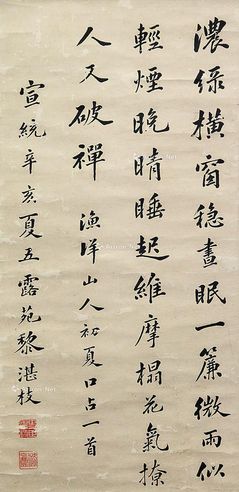 濃綠橫窗穩晝眠一簾微雨似
輕煙晚晴睡起維摩榻花氣撩
人又破禪 漁洋山人初夏口占一首
宣統辛亥夏五露苑黎湛枝